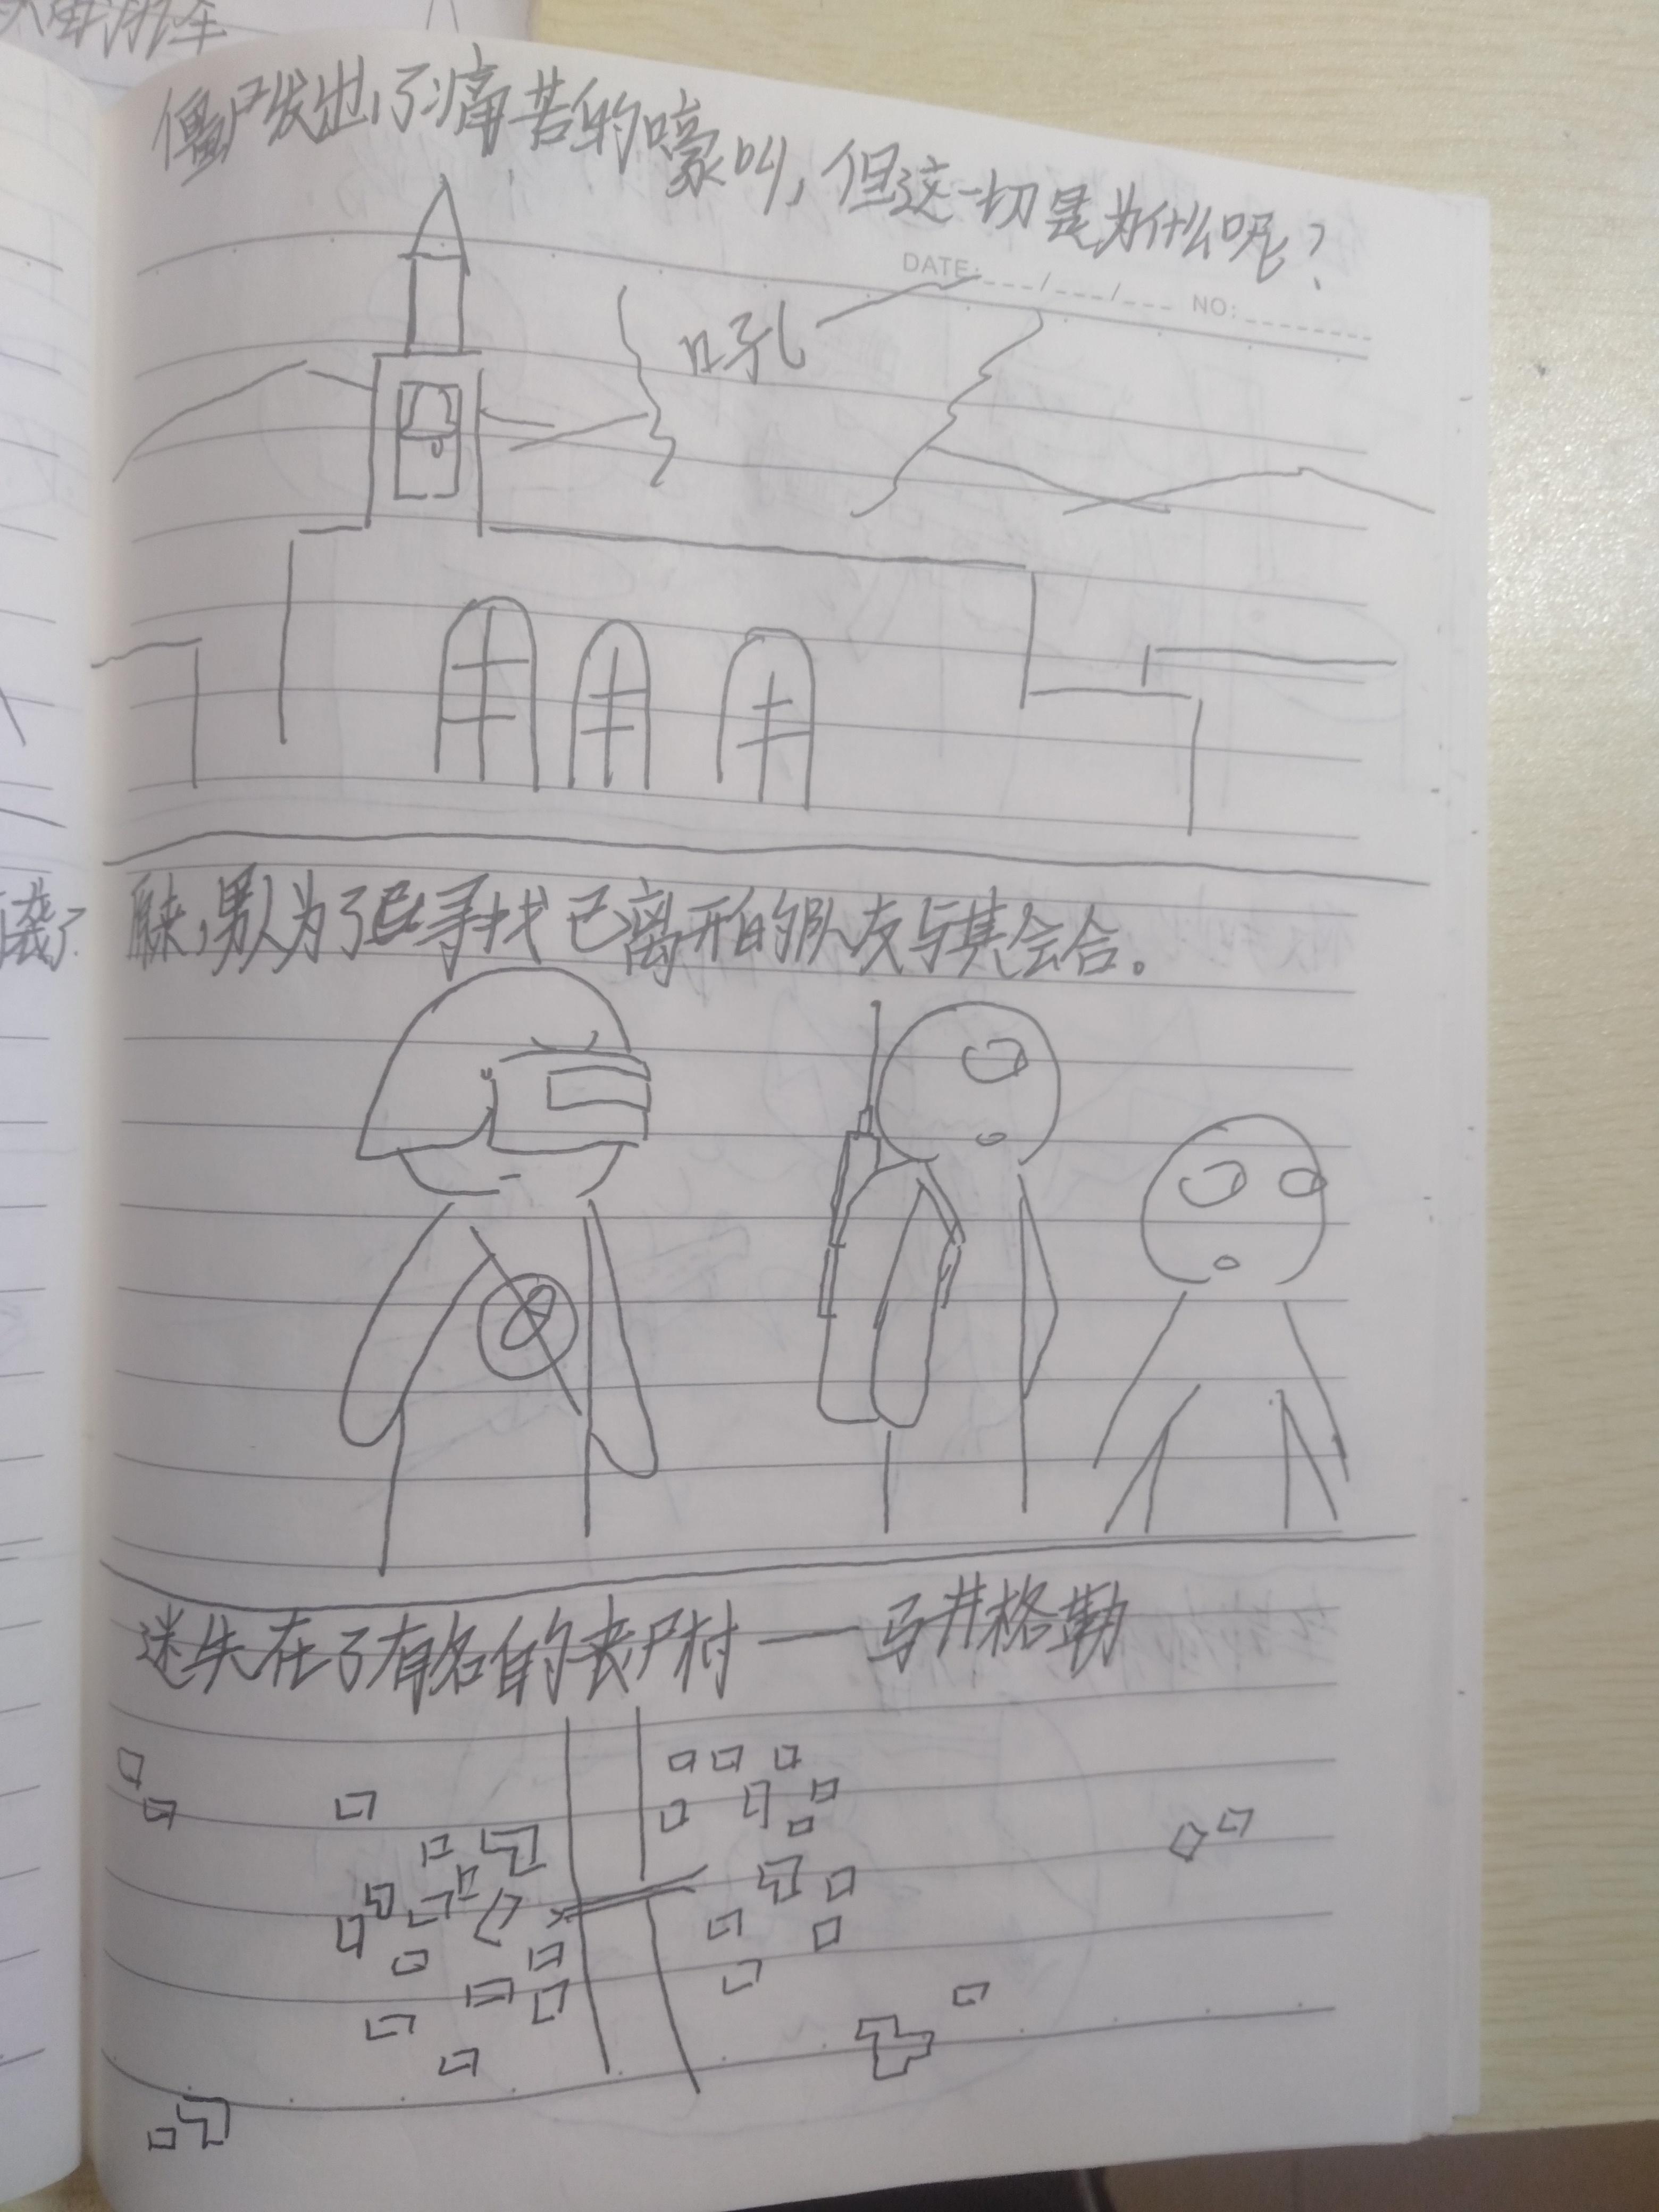 僵尸发出了痛苦的嚎叫，但这一切是为什么呢？
DATE: / / NO:
吼
袭了
原来，男人为了寻找已离开的队友与其会合。
迷失在了有名的丧尸村——马井格勒